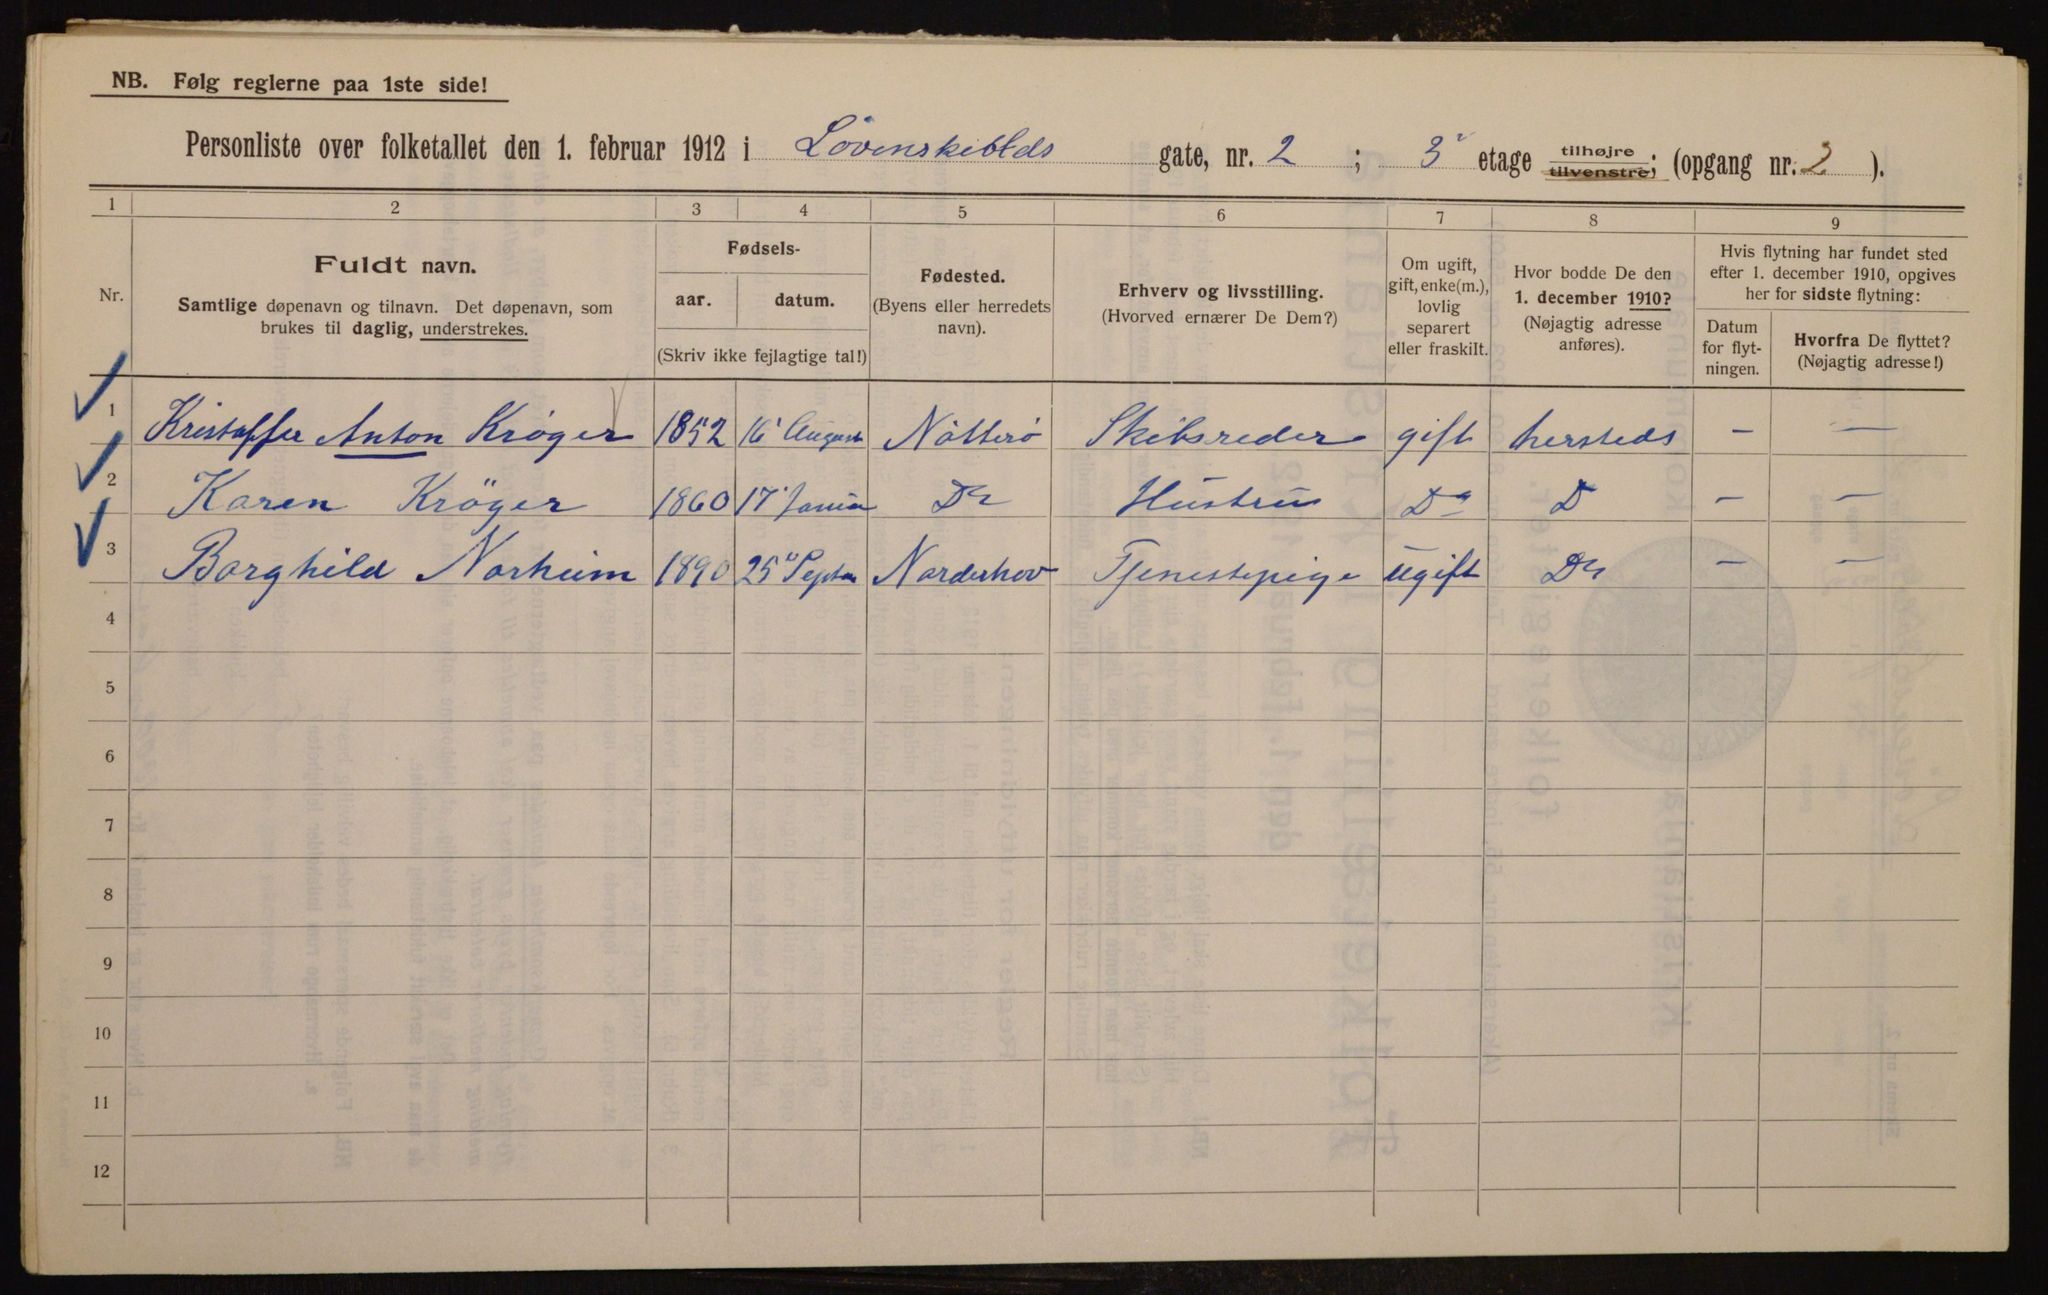 NB. Følg reglerne paa 1ste side!
Personliste over folketallet den 1. februar 1912 i Løvenskiolds gate, nr. 2 ; 3 etage tilhøjre tilvenstre; (opgang nr. 2 ).
1 2 3 4 5 6 7 8 9
Nr.
Fuldt navn.
Samtlige døpenavn og tilnavn. Det døpenavn, som
brukes til daglig, understrekes.
Fødsels-
aar. datum.
(Skriv ikke fejlagtige tal!)
Fødested.
(Byens eller herredets
navn).
Erhverv og livsstilling.
(Hvorved ernærer De Dem?)
Om ugift,
gift, enke(m.),
lovlig
separert
eller fraskilt.
Hvor bodde De den
1. december 1910?
(Nøjagtig adresse
anføres).
Hvis flytning har fundet sted
efter 1. december 1910, opgives
her for sidste flytning:
Datum
for flyt-
ningen.
Hvorfra De flyttet?
(Nøjagtig adresse!)
1 Kristoffer Anton Krøger 1852 16 August Nötterö Skibsreder gift hersteds – –
2 Karen Krøger 1860 17 Janua Do Hustru Do D – –
3 Borghild Norheim 1890 25 Septbr Norderhov Tjenestepige ugift Do – –
4
5
6
7
8
9
10
11
12